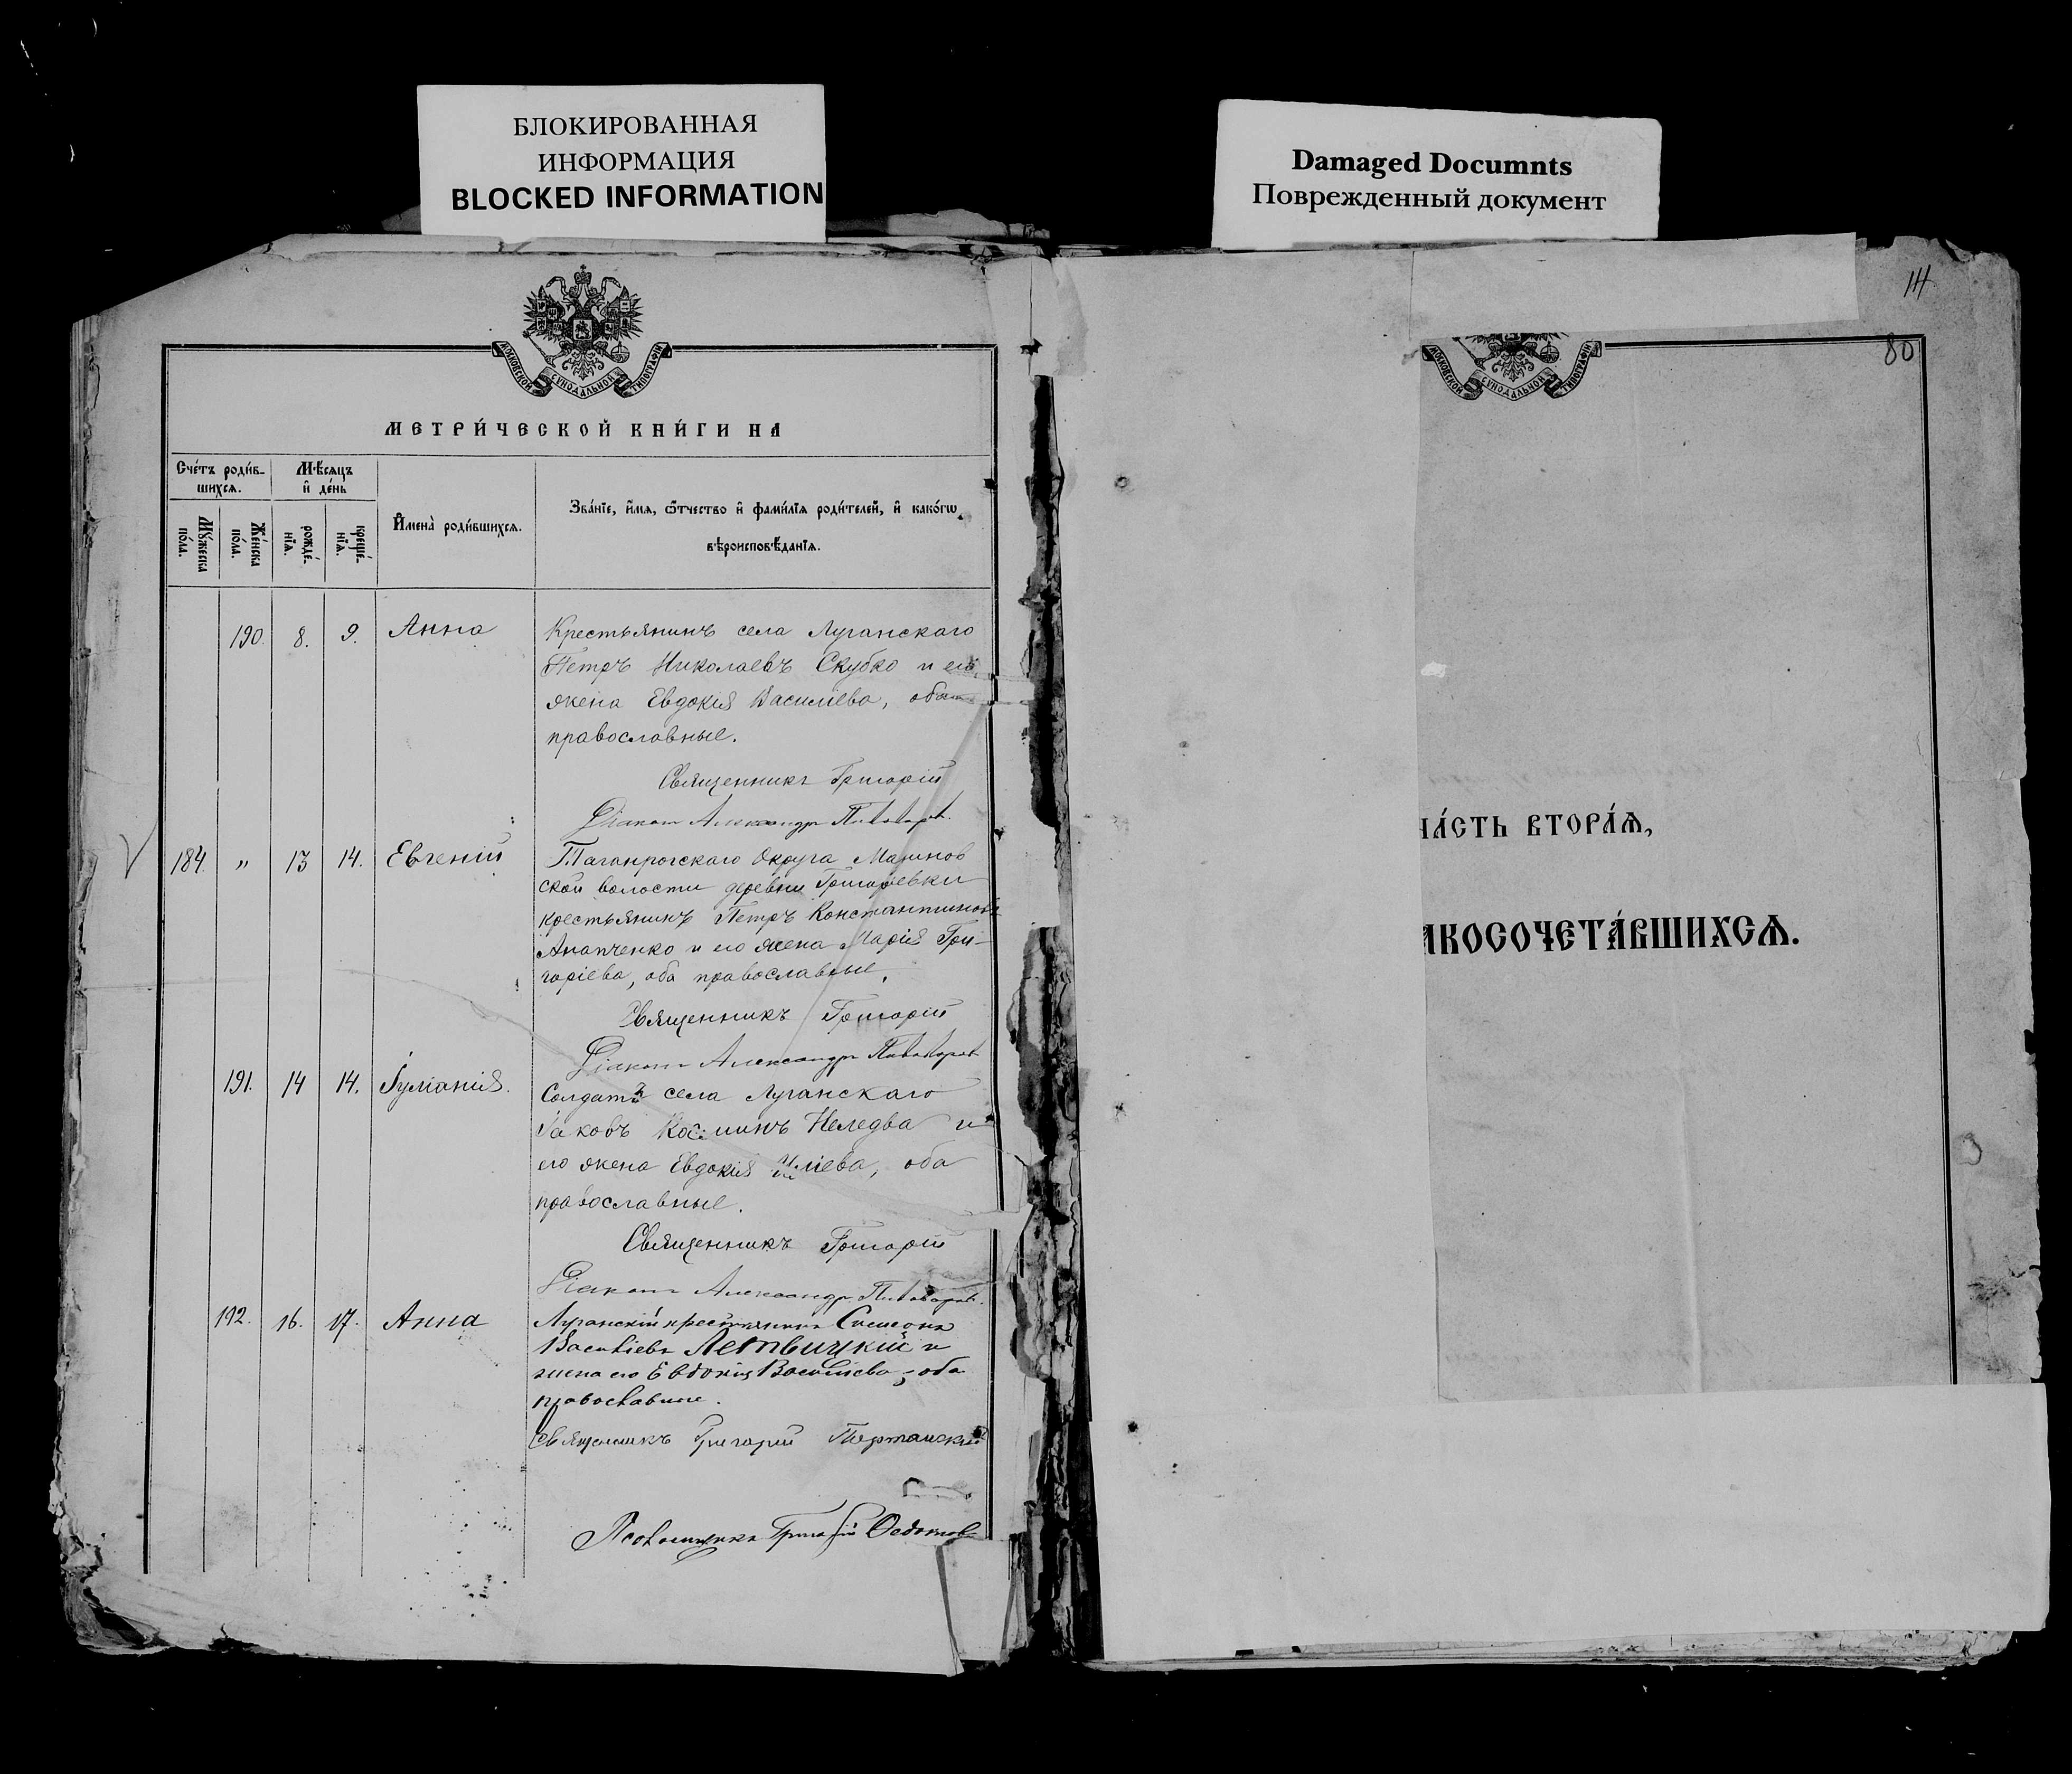 БЛОКИРОВАННАЯ
ИНФОРМАЦИЯ
BLOCKED INFORMATION
Damaged Documnts
Поврежденный документ
114
80
МОСКОВСКОЙ СУНОДАЛЬНОЙ ТИПОГРАФІИ
МЕТРИ́ЧЕСКОЙ КНИ́ГИ НА
Сче́тъ роди́в-
шихсѧ.
Мѣ́сѧцъ
и҆ де́нь
Мꙋ́жеска
по́ла.
Же́нска
по́ла.
рожде́-
нїѧ.
креще́-
нїѧ.
И҆мена̀ роди́вшихсѧ.
Зва́нїе, и҆́мѧ, ѻ҆́тчество и҆ фами́лїѧ роди́телей, и҆ како́гѡ
вѣроисповѣ́данїѧ.
190. 8. 9. Анна Крестьянинъ села Луганскаго
Петръ Николаевъ Скубко и его
жена Евдокія Василіева, оба
православные.
Священникъ Григорій
Діаконъ Александръ Пивоваровъ
184. " 13 14. Евгеній Таганрогскаго Округа
ской волости деревни Григорьевки
крестьянинъ Петръ Константиновъ
Агапченко и его жена Марія Гри-
горіева, оба православные.
Священникъ Григорій
Діаконъ Александръ Пивоваровъ
191. 14 14. Іуліанія. Солдатъ села Луганскаго
Іаковъ Косминъ Неледва и
его жена Евдокія Иліева, оба
православные.
Священникъ Григорій
Діаконъ Александръ Пивоваровъ.
192. 16. 17. Анна Луганскій крестьянинъ Симеонъ
Василіевъ Летвицкій и
жена его Евдокія Василіева, оба
православные.
Священникъ Григорій
Псаломщикъ Григорій Федотовъ
МОСКОВСКОЙ СУНОДАЛЬНОЙ ТИПОГРАФІИ
ЧА́СТЬ ВТОРА́Ѧ,
АКОСОЧЕТА́ВШИХСѦ.